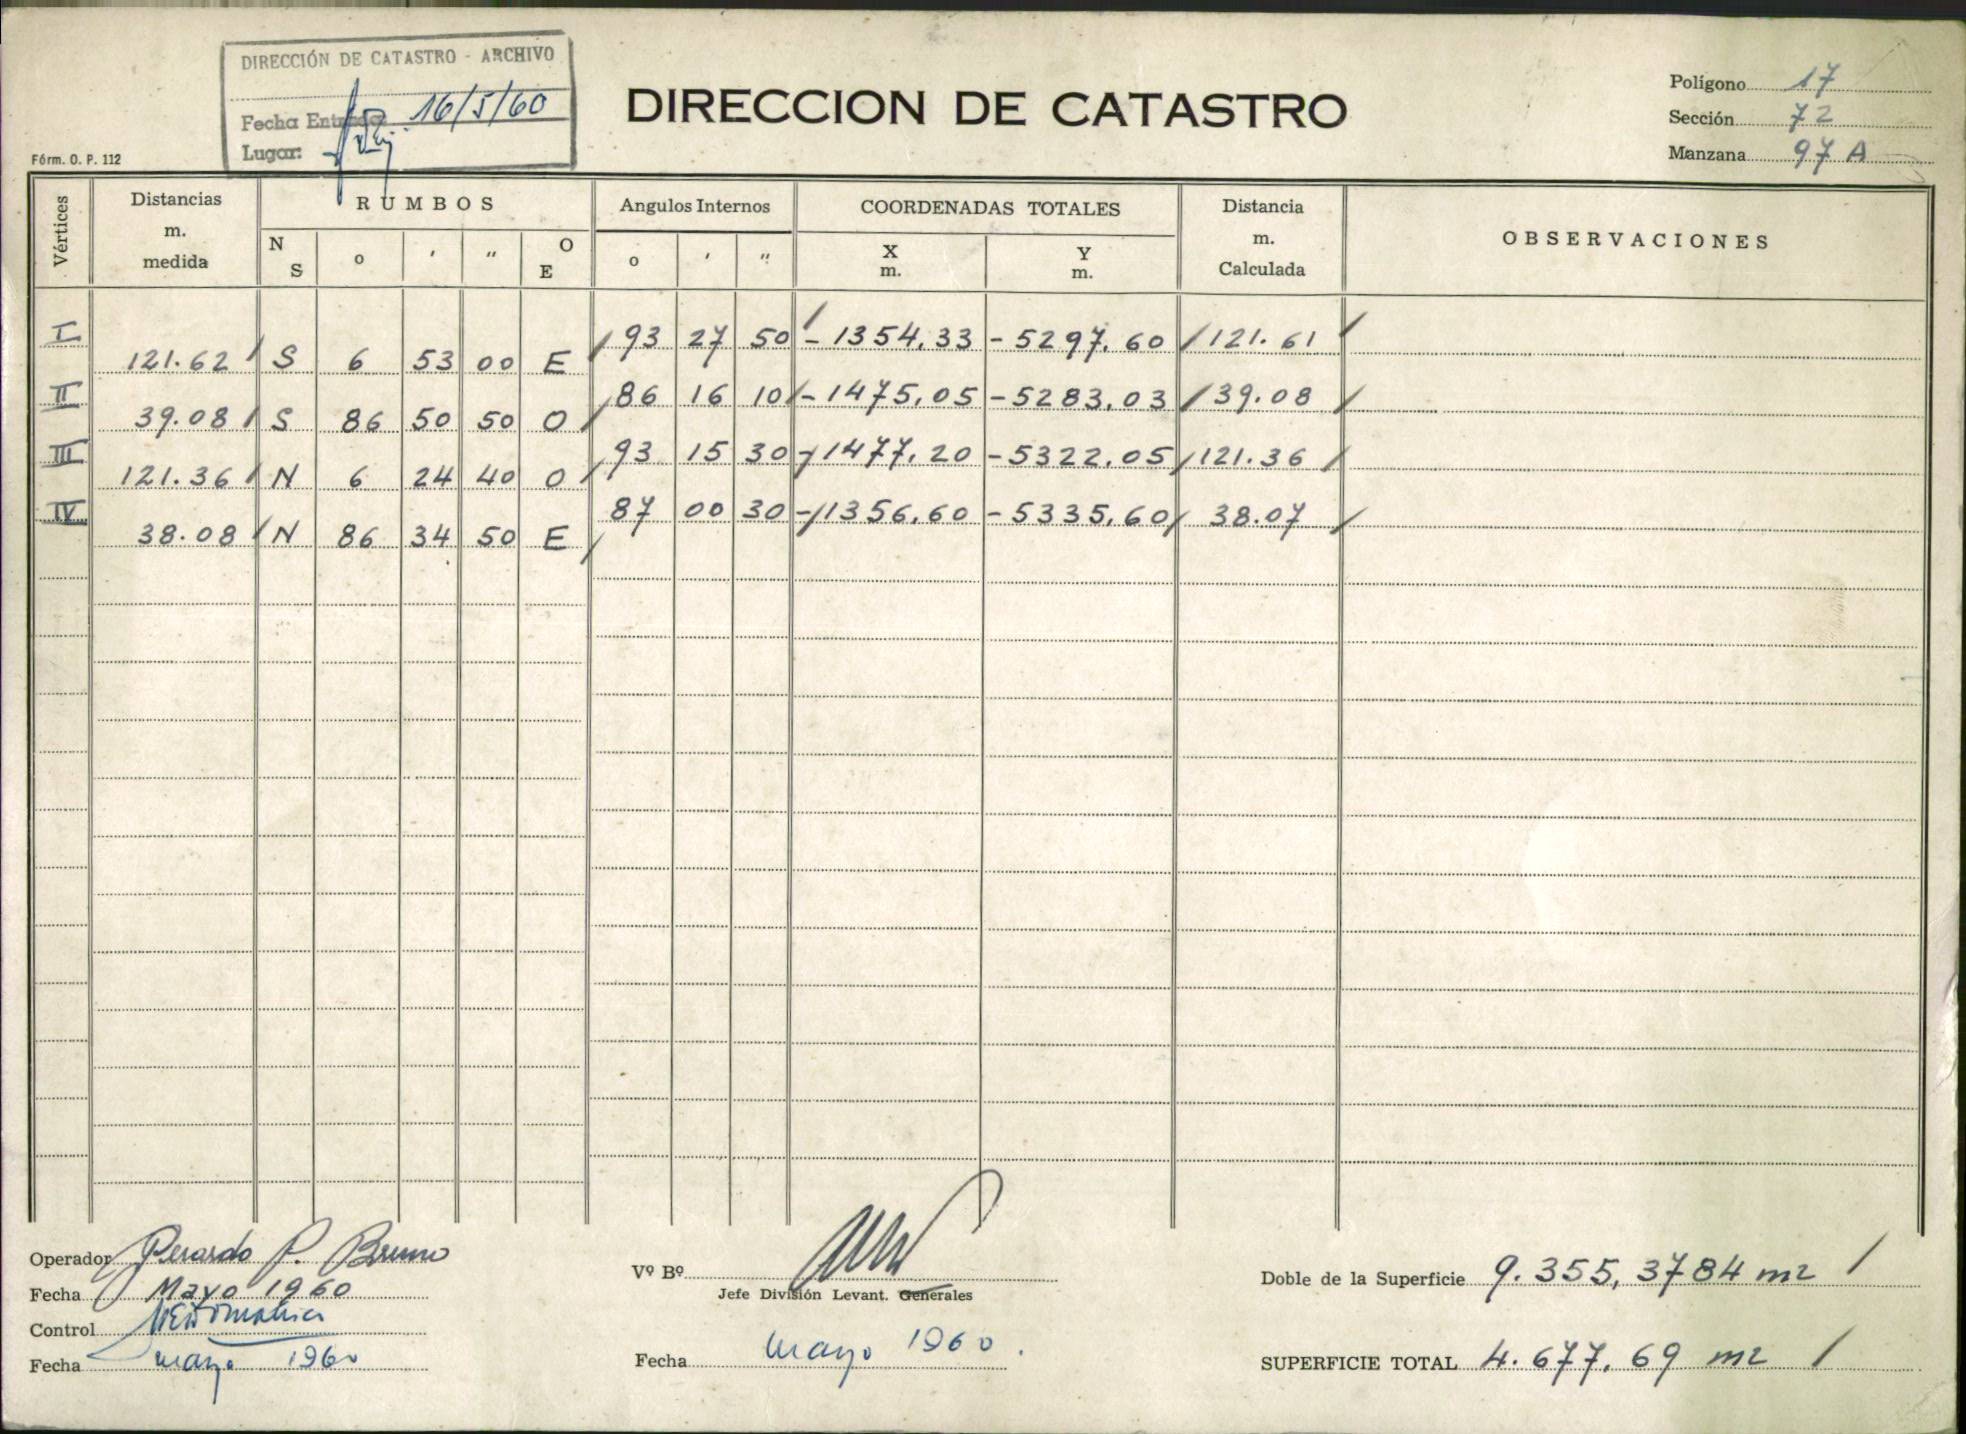 DIRECCIÓN DE CATASTRO - ARCHIVO
Fecha Entrada: 16/5/60
Lugar:
DIRECCION DE CATASTRO
Polígono 17
Sección 72
Manzana 97 A
Fórm. O. P. 112
Vértices Distancias m. medida RUMBOS Angulos Internos COORDENADAS TOTALES Distancia m. Calculada OBSERVACIONES
N S o ' " O E o ' " X m. Y m.
I 93 27 50 - 1354,33 - 5297,60 121.61
121.62 S 6 53 00 E
II 86 16 10 - 1475,05 - 5283,03 39.08
39.08 S 86 50 50 O
III 93 15 30 - 1477,20 - 5322,05 121.36
121.36 N 6 24 40 O
IV 87 00 30 - 1356,60 - 5335,60 38.07
38.08 N 86 34 50 E
Operador Gerardo P. Bruno
Fecha Mayo 1960
Control
Fecha mayo 1960
Vº Bº
Jefe División Levant. Generales
Fecha mayo 1960.
Doble de la Superficie 9.355,3784 m2
SUPERFICIE TOTAL 4.677,69 m2